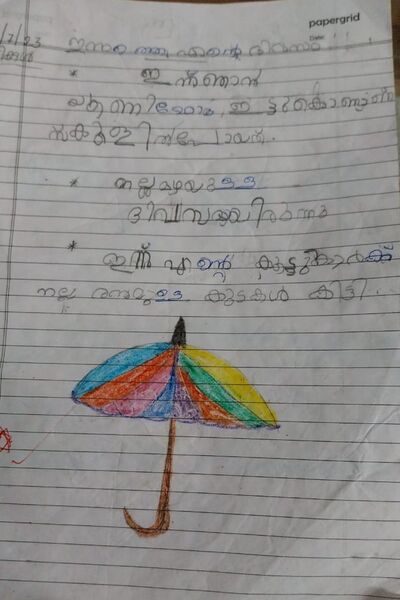 papergrid
Date:
/7/23
ഇന്നത്തെ എന്റെ ദിവസം
* ഇന്ന് ഞാൻ
യൂണിഫോം ഇട്ടുകൊണ്ടാണ്
സ്കൂളിൽ പോയത്.
* നല്ല മഴയുള്ള
ദിവസമായിരുന്നു
* ഇന്ന് എന്റെ കൂട്ടുകാർക്ക്
നല്ല രസമുള്ള കുടകൾ കിട്ടി.